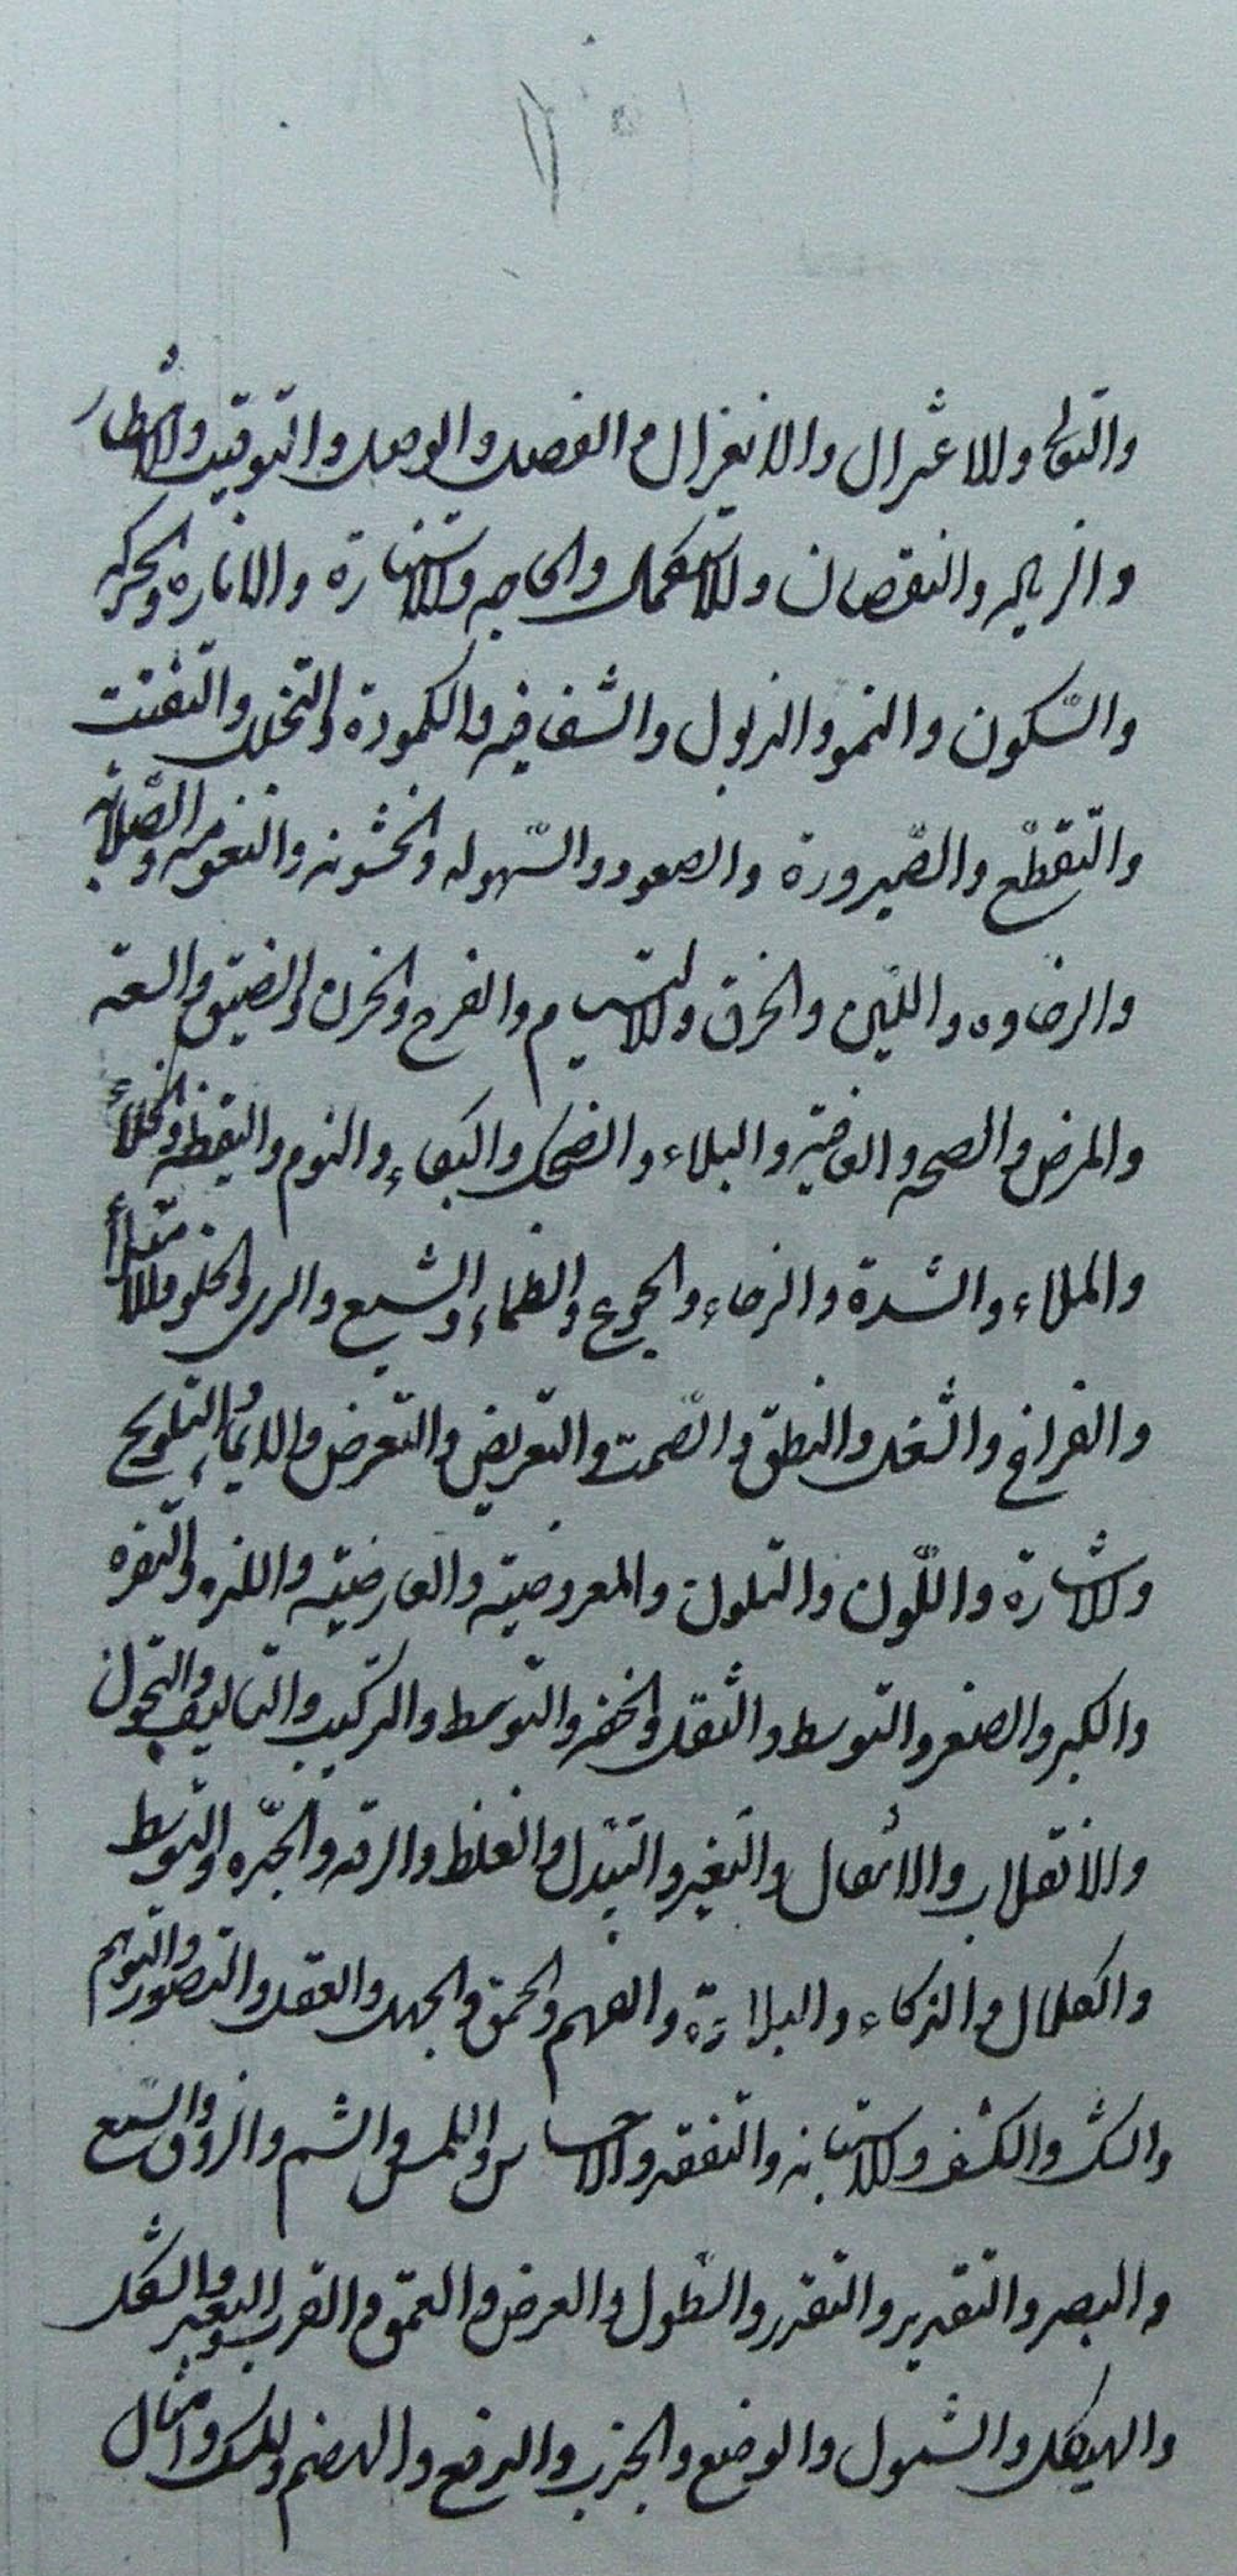 والتوالي والاعتزال والانعزال والفصل والوصل والتوقيت والانتظار
والزياده والنقصان والاستكمال والحاجه والاستنارة والاناره والحركه
والسّكون والنمو والذبول والشفافيه والكمودة والتخلل والتفتت
والتّقطّع والصّيرورة والصعود والسّهوله والخشونه والنعومه والصّلابه
والرخاوه واللّين والخرق والالتيام والفرح والحزن والضيق والسعة
والمرض والصحه والعافيّه والبلاء والضحك والبكاء والنوم واليقظه والخلاء
والملاء والشدة والرخاء والجوع والظماء والشبع والرى والخلو والامتلاء
والفراغ والشغل والنطق والصّمت والتعريض والتعرض والايماء والتلويح
والاشارة واللّون والتلون والمعروضيّه والعارضيّه واللذه والنفره
والكبر والصغر والتوسط والثقل والخفه والتوسط والتركيب والتاليف والتحول
والانقلاب والانتقال والتغير والتبدل والغلظ والرقه والحدّه والتوسط
والكلال والذكاء والبلادة والفهم والحمق والجهل والعقل والتصور والتوهم
والشك والكشف والاستبانه والتفقه والاحساس واللمس والشم والذوق والسّمع
والبصر والتقدير والتقدر والطّول والعرض والعمق والقرب والبعد والشكل
والهيكل والشمول والوضع والجذب والدفع والهضم والمسك وامثال